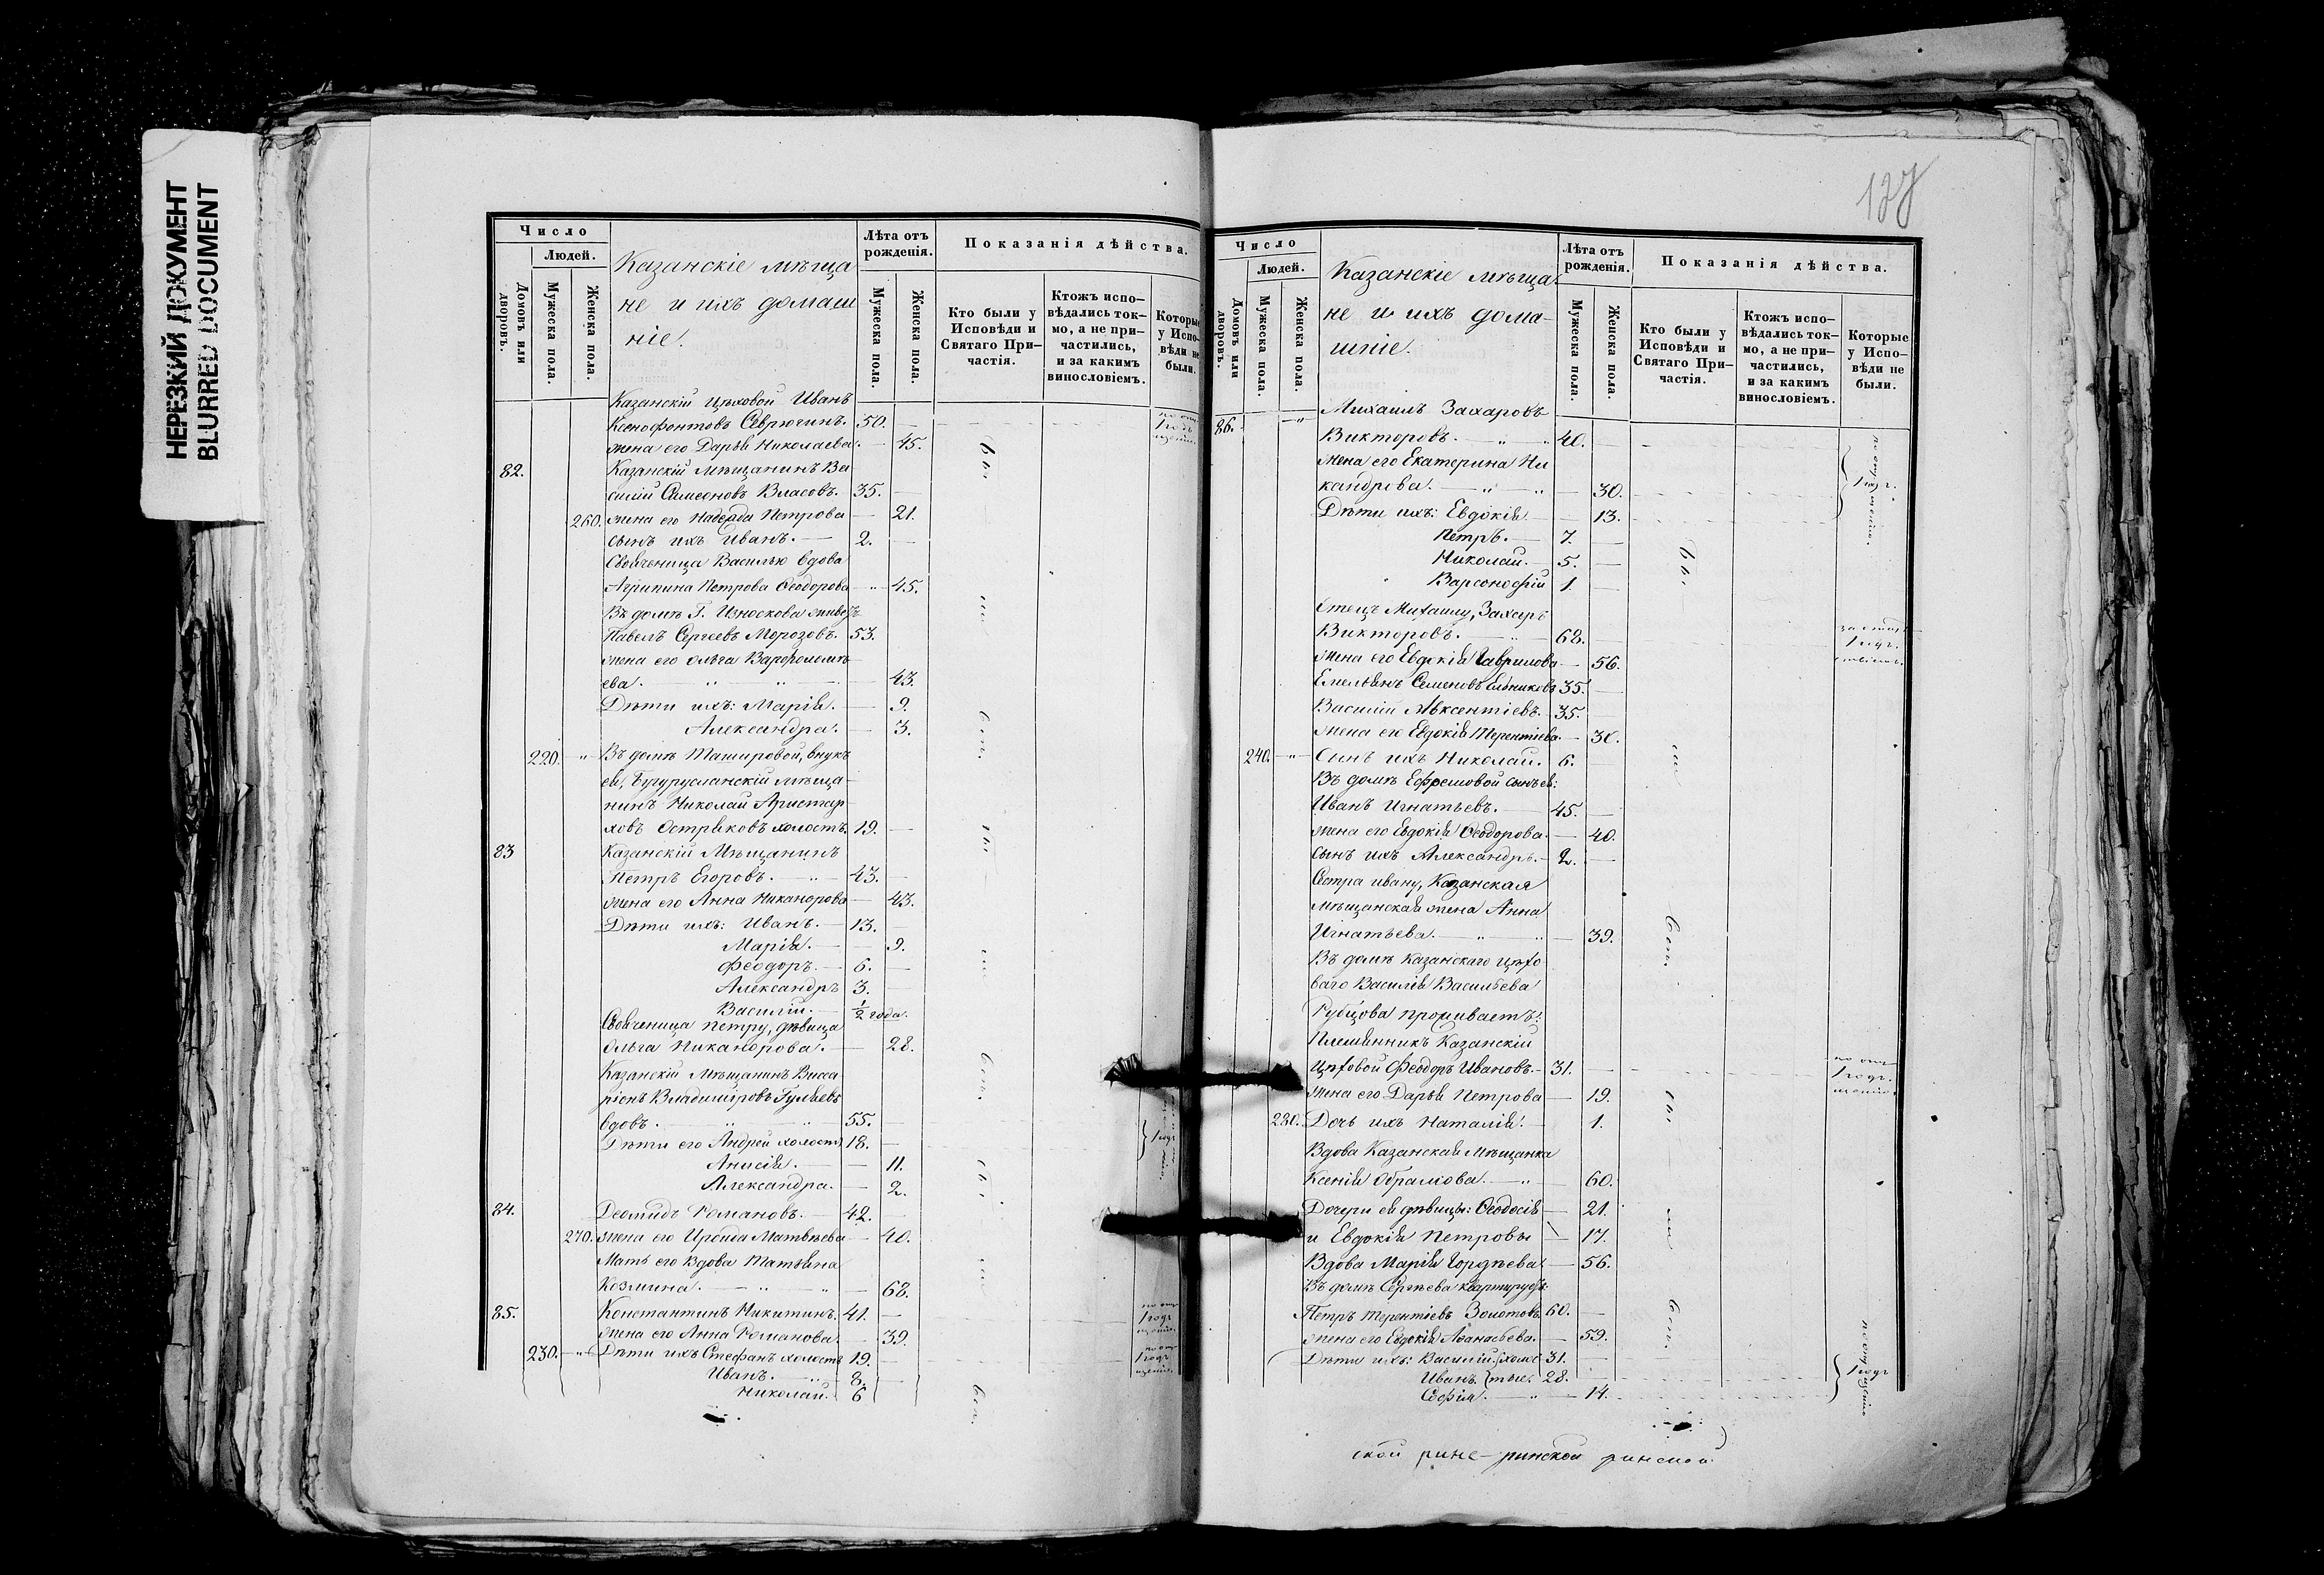 НЕРЕЗКИЙ ДОКУМЕНТ
BLURRED DOCUMENT
Число
Людей.
Домовъ или дворовъ.
Мужеска пола.
Женска пола.
Казанскіе мѣща
не и ихъ домаш
ніе.
Лѣта отъ рожденія.
Мужеска пола.
Женска пола.
Показанія дѣйства.
Кто были у Исповѣди и Святаго При-частія.
Ктожъ испо-вѣдались ток-мо, а не при-частились, и за какимъ винословіемъ.
Которые у Испо-вѣди не были.
Казанскій цѣховой Иванъ
Ксенофонтовъ Севрюгинъ. 50.
жена его Дарья Николаева. 45.
82. Казанскій мѣщанинъ Ва
силій Симеоновъ Власовъ. 35.
260. жена его Надежда Петрова 21.
сынъ ихъ Иванъ. 2.
Свояченица Василью вдова
Агрипина Петрова Ѳеодорова 45.
Въ домѣ Г. Износкова живетъ
Павелъ Сергѣевъ Морозовъ. 53.
жена его Ольга Варѳоломѣ
ева. 43.
Дѣти ихъ: Марія. 9.
Александра. 3.
220. Въ домѣ Ташировой, внукъ
ея, Бугурусланскій мѣща-
нинъ Николай Аристар-
ховъ Остряковъ холостъ. 19.
83 Казанскій Мѣщанинъ
Петръ Егоровъ. 43.
жена его Анна Никанорова 43.
Дѣти ихъ: Иванъ. 13.
Марія. 9.
Феодоръ. 6.
Александръ 3.
Василій. 1/2 года.
Свояченица Петру, дѣвица
Ольга Никанорова. 28.
Казанскій мѣщанинъ Висса
ріонъ Владиміровъ Гуляевъ
вдовъ. 55.
Дѣти его Андрей холостъ 18.
Анисія. 11.
Александра. 2.
84. Деомидъ Романовъ. 42.
270. жена его Ираида Матвѣева 40.
Мать его вдова Татьяна
Козмина. 68.
85. Константинъ Никитинъ. 41.
жена его Анна Романова. 39.
230. Дѣти ихъ Стефанъ холостъ 19.
Иванъ. 8.
Николай. 6
127
Число
Людей.
Домовъ или дворовъ.
Мужеска пола.
Женска пола.
Казанскіе мѣща
не и ихъ дома-
шніе.
Лѣта отъ рожденія.
Мужеска пола.
Женска пола.
Показанія дѣйства.
Кто были у Исповѣди и Святаго При-частія.
Ктожъ испо-вѣдались ток-мо, а не при-частились, и за какимъ винословіемъ.
Которые у Испо-вѣди не были.
86. Михаилъ Захаровъ
Викторовъ. 40.
жена его Екатерина Ни
кандрова. 30.
Дѣти ихъ: Евдокія 13.
Петръ. 7.
Николай. 5.
Варсонофій 1.
Отецъ Михаилу, Захаръ
Викторовъ. 68.
жена его Евдокія Гаврилова 56.
Емельянъ Семеновъ 35.
Василій Авксентіевъ. 35.
жена его Евдокія Терентіева. 30.
240. Сынъ ихъ Николай. 6.
Въ домѣ Ефремовой сынъ ея:
Иванъ Игнатьевъ. 45.
жена его Евдокія Ѳеодорова. 40.
сынъ ихъ Александръ. 2.
Сестра Ивану, Казанская
мѣщанская жена Анна
Игнатьева. 39.
Въ домѣ Казанскаго цѣхо-
ваго Василія Васильева
Рубцова проживаетъ:
Племянникъ Казанскій
цѣховой Феодоръ Ивановъ. 31.
жена его Дарья Петрова 19.
280. Дочь ихъ Наталія. 1.
Вдова Казанская мѣщанка
Ксенія Абрамова. 60.
Дочери ея дѣвицы: Ѳеодосія 21.
и Евдокія Петровы 17.
Вдова Марія Гордѣева. 56.
Въ домѣ Сергѣева квартируетъ:
Петръ Терентіевъ Золотовъ. 60.
жена его Евдокія Аѳанасьева. 59.
Дѣти ихъ: Василій холос 31.
Иванъ тые. 28.
Софія. 14.
ской рине-ринской ринской